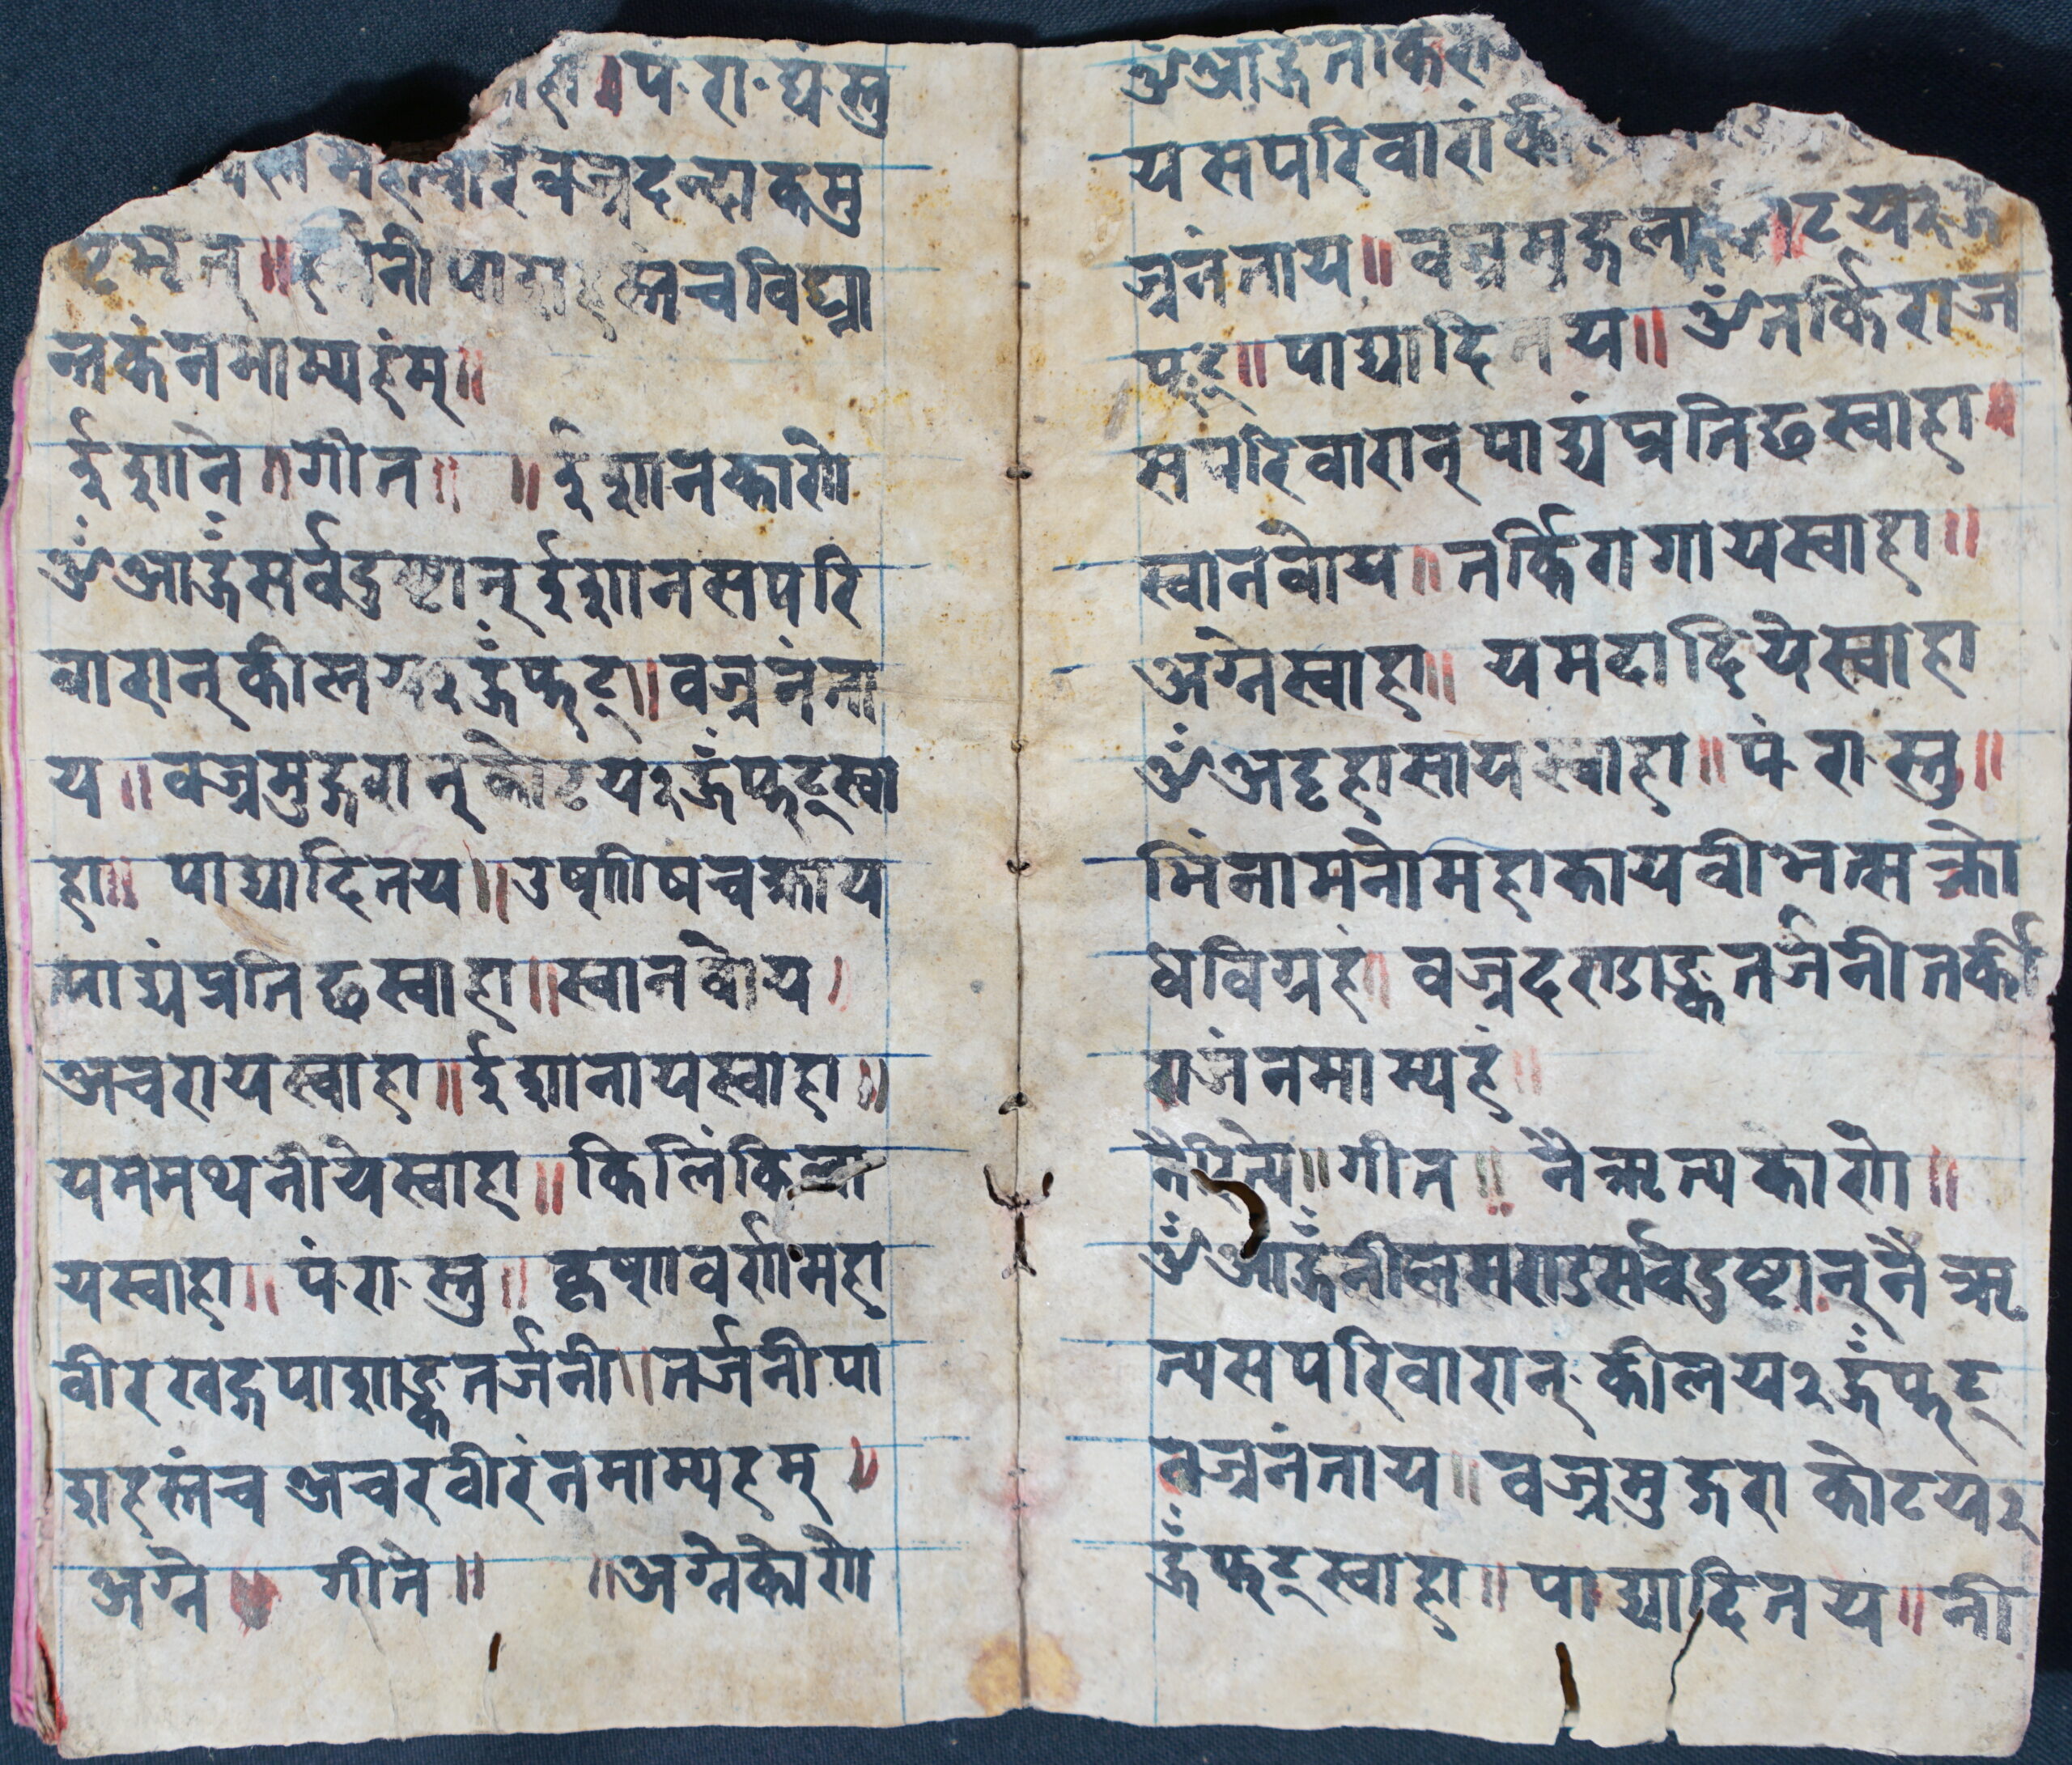 हा ॥ पं· रा· घ्यं· स्तु
वज्रदन्दाकमु
नी पा स्तंच विघ्ना
न्तकं नमाम्यहंम् ॥
ईशाने ॥ गीत ॥ ॥ ईशानकोणे
ॐ आः हूँ सर्व दुष्टान् ईशान सपरि
वारान् कीलय २ हूँ फट् ॥ वज्रनंता
य ॥ वज्रमुद्गरान् कोटय २ हूँ फट् स्वा
हा ॥ पाद्यादि तय ॥ उष्णीषचक्राय
पाद्यं प्रतिछ स्वाहा ॥ स्वानवोय ॥
अचराय स्वाहा ॥ ईशानाय स्वाहा ॥
यममथनीये स्वाहा ॥ किलिंकिला
य स्वाहा ॥ पं· रा· स्तु ॥ कृष्णवर्ण महा
वीर खड्गपाशाङ्कतर्जनी ॥ तर्जनी पा
शहस्तंच अचरवीरं नमाम्यहम् ॥
अग्ने ॥ गीते ॥ ॥ अग्नेकोणे
ॐ आः हूँ नीकरा
य सपरिवारां की
ज्रनंताय ॥ वज्रमुद्गला टय २ हूँ
फट् ॥ पाद्यादि तय ॥ ॐ तर्किराज
सपरिवारान् पाद्यं प्रतिछ स्वाहा ॥
स्वानवोय ॥ तर्किरागाय स्वाहा ॥
अग्ने स्वाहा ॥ यमदादिये स्वाहा
ॐ अट्टहासाय स्वाहा ॥ पं· रा· स्तु ॥
मिंनामनो महाकाय वीभत्स क्रो
धविग्रहं ॥ वज्रदण्डाङ्कतर्जनी तर्की
राजं नमाम्यहं ॥
नैरित्ये ॥ गीत ॥ नैऋत्यकोणे ॥
ॐ आः हूँ नीलमण्ड सर्व दुष्टान् नैऋ
त्य सपरिवारान् कीलय २ हूँ फट्
वज्रनंताय ॥ वज्रमुद्गरा कोटय २
हूँ फट् स्वाहा ॥ पाद्यादि तय ॥ नी